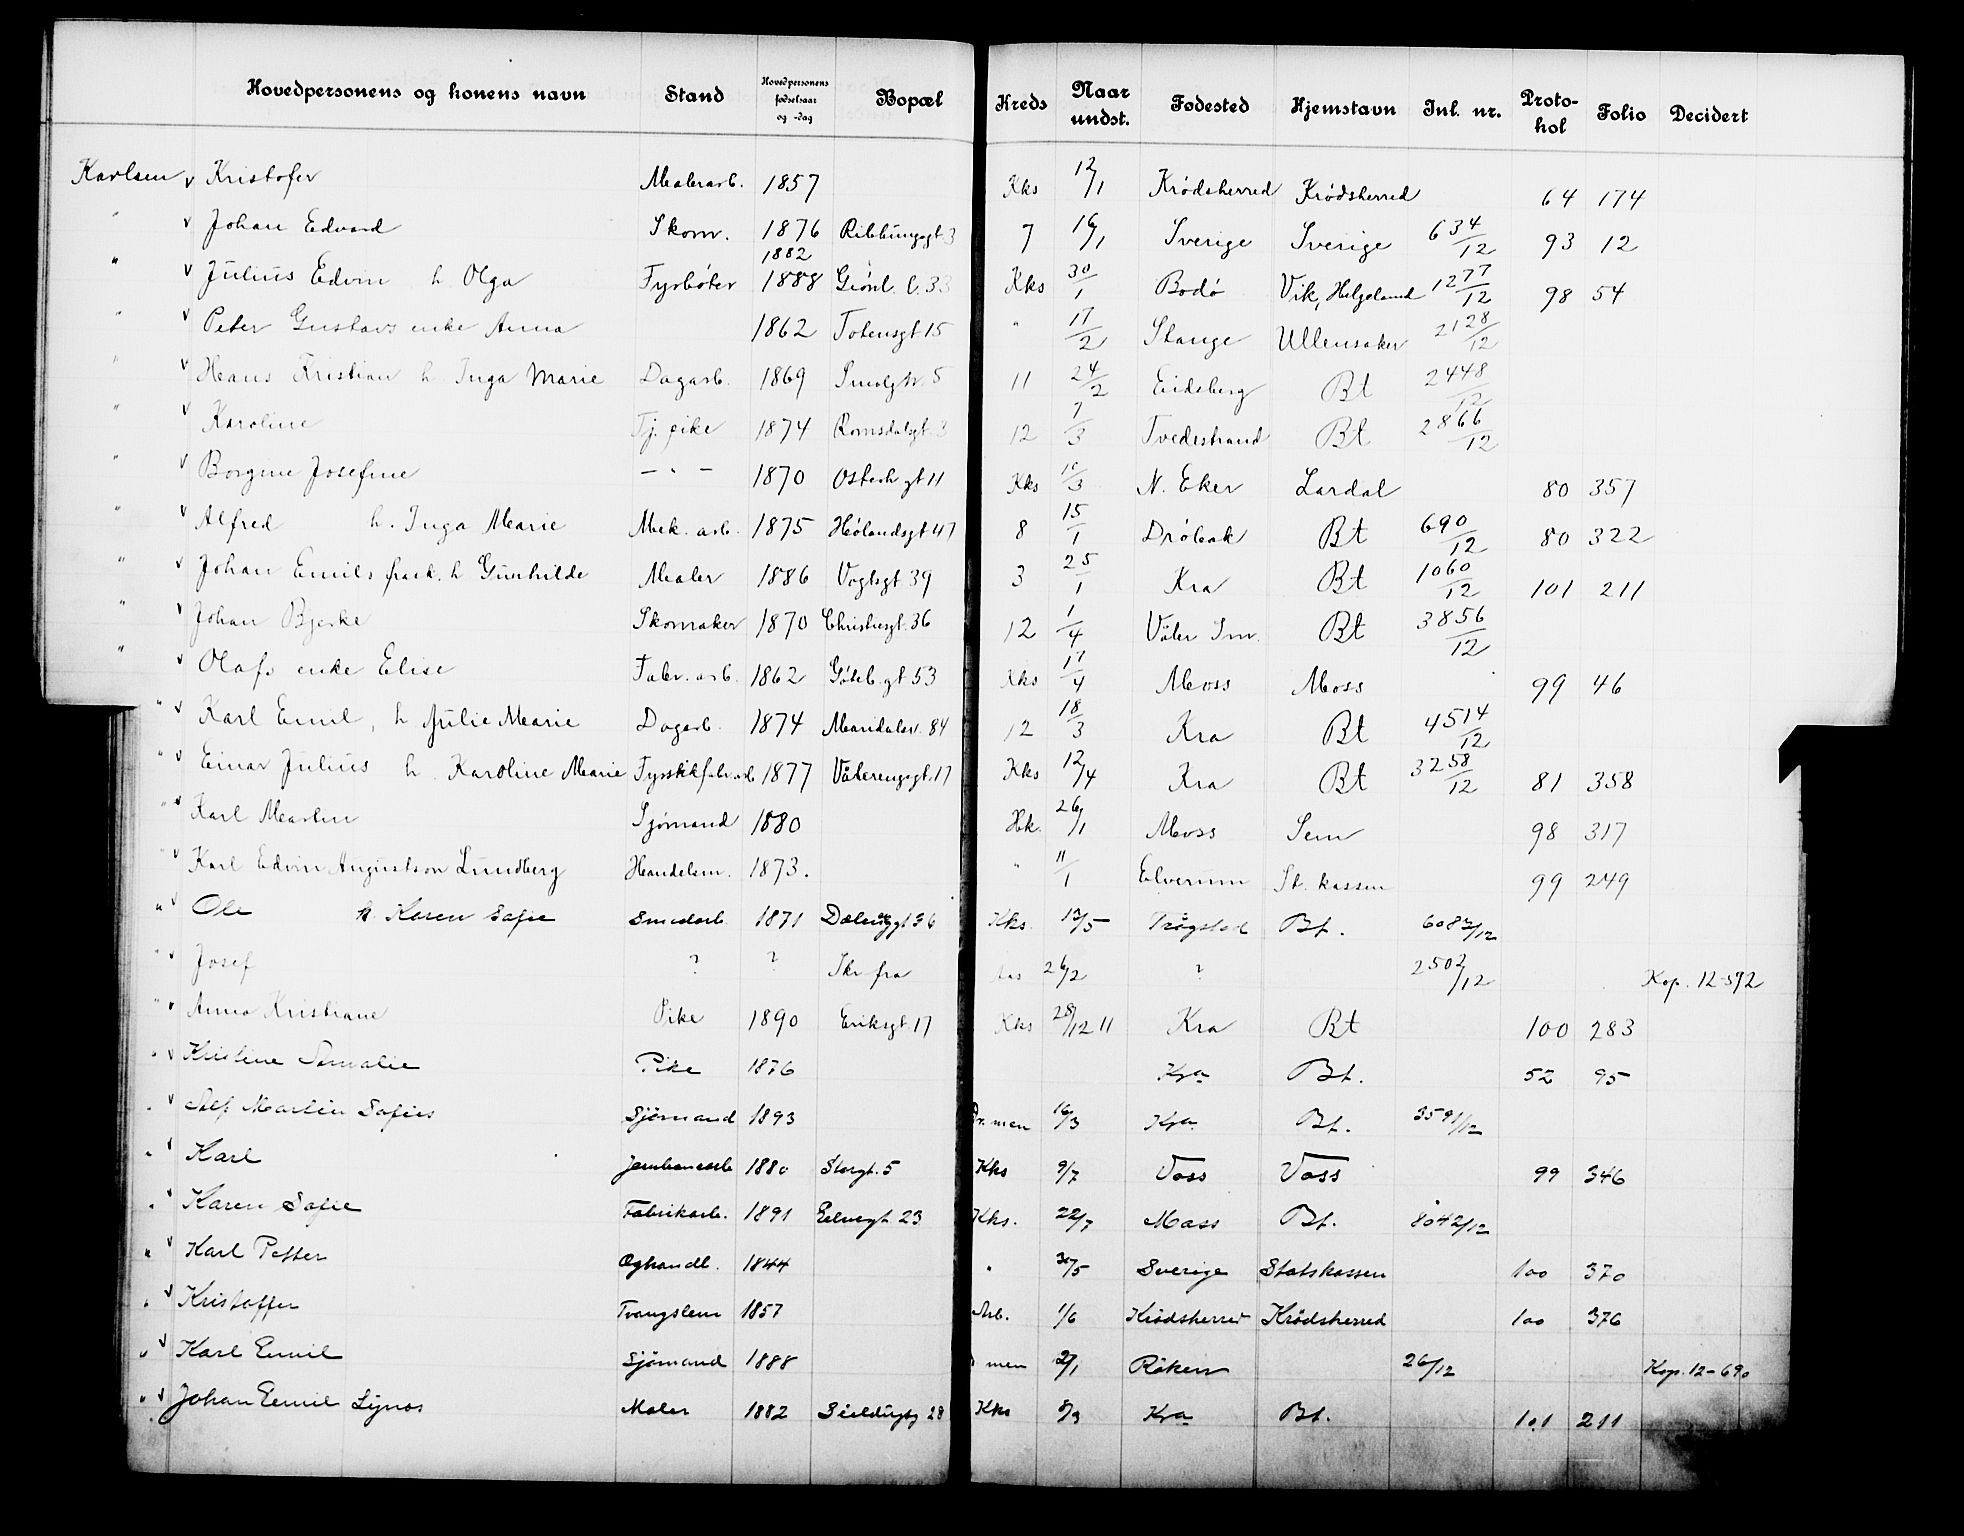 Hovedpersonens og konens navn Stand Hovedpersonens fødselsaar og -dag Bopæl Kreds Naar undst. Fødested Hjemstavn Inl. nr. Protokol Folio Decidert
Karlsen v Kristofer Malerarb. 1857 Kks 12/1 Krødsherred Krødsherred 64 174
" v Johan Edvard Skom. 1876 Ribbungsgt 3 7 16/1 Sverige Sverige 634/12 93 12
1882
" v Julius Edvin h Olga Fyrbøter 1888 Grønl. l. 33 Kks 30/1 Bodø Vik, Helgeland 1277/12 98 54
" v Peter Gustavs enke Anna 1862 Totensgt 15 " 17/2 Stange Ullensaker 2128/12
" v Hans Kristian h Inga Marie Dagarb. 1869 5 11 24/2 Eidsberg Bt 2448/12
" v Karoline Tj. pike 1874 Romsdalsgt. 3 12 7/3 Tvedestrand Bt 2866/12
" v Borgine Josefine — " — 1870 Osterh gt 11 Kks 10/3 N. Eker Lardal 80 357
" v Alfred h. Inga Marie Mek. arb. 1875 Hølandsgt 47 8 15/1 Drøbak Bt 690/12 80 322
" v Johan Emils frask. h Gunhilde Maler 1886 Vogtsgt 39 3 25/1 Kra Bt 1060/12 101 211
" v Johan Bjerke Skomaker 1870 Christiesgt. 36 12 1/4 Våler Sm. Bt 3856/12
" v Olafs enke Elise Fabr. arb. 1862 Gøteb. gt 53 Kks 17/4 Moss Moss 99 46
" v Karl Emil, h Julie Marie Dagarb. 1874 Maridalsv. 84 12 18/3 Kra Bt 4514/12
" v Einar Julius h. Karoline Marie Fyrstikfabr.arb 1877 Vålerengsgt. 17 Kks 12/4 Kra Bt 3258/12 81 358
" v Karl Martin Sjømand 1880 Hk. 26/1 Moss Sem 98 317
" v Karl Edvin Augustson Lundberg Handelsm. 1873. " 11/1 Elverum St. kassen 99 249
" v Ole h. Karen Sofie Smedarb. 1871 Dælenggt 36 Kks 13/5 Trøgstad Bt. 6082/12
" v Josef ? ? Skr fra 26/2 ? 2502/12 Kop. 12-592
" v Anna Kristiane Pike 1890 Eriksgt. 17 Kks 28/12 11 Kra Bt 100 283
" v Kristine Amalie Pike 1876 Kra Bt. 52 95
" v Alf Martin Sofies Sjømand 1893 Dr. men 16/3 Kra. Bt. 3591/12
" v Karl Jernbanearb 1880 Storgt. 5 Kks 9/7 Voss Voss 99 346
" v Karen Sofie Fabrikarb. 1891 Eelvegt. 23 Kks. 22/7 Moss Bt. 8042/12
" v Karl Petter Ophandl. 1844 " 30/5 Sverige Statskassen 100 370
" v Kristoffer Tvangslem 1857 Arb. 1/6 Krødsherred Krødsherred 100 376
" v Karl Emil Sjømand 1888 men 2/1 Røken 26/12 Kop. 12-690
" v Johan Emil Maler 1882 28 Kks 5/3 Kra Bt. 101 211